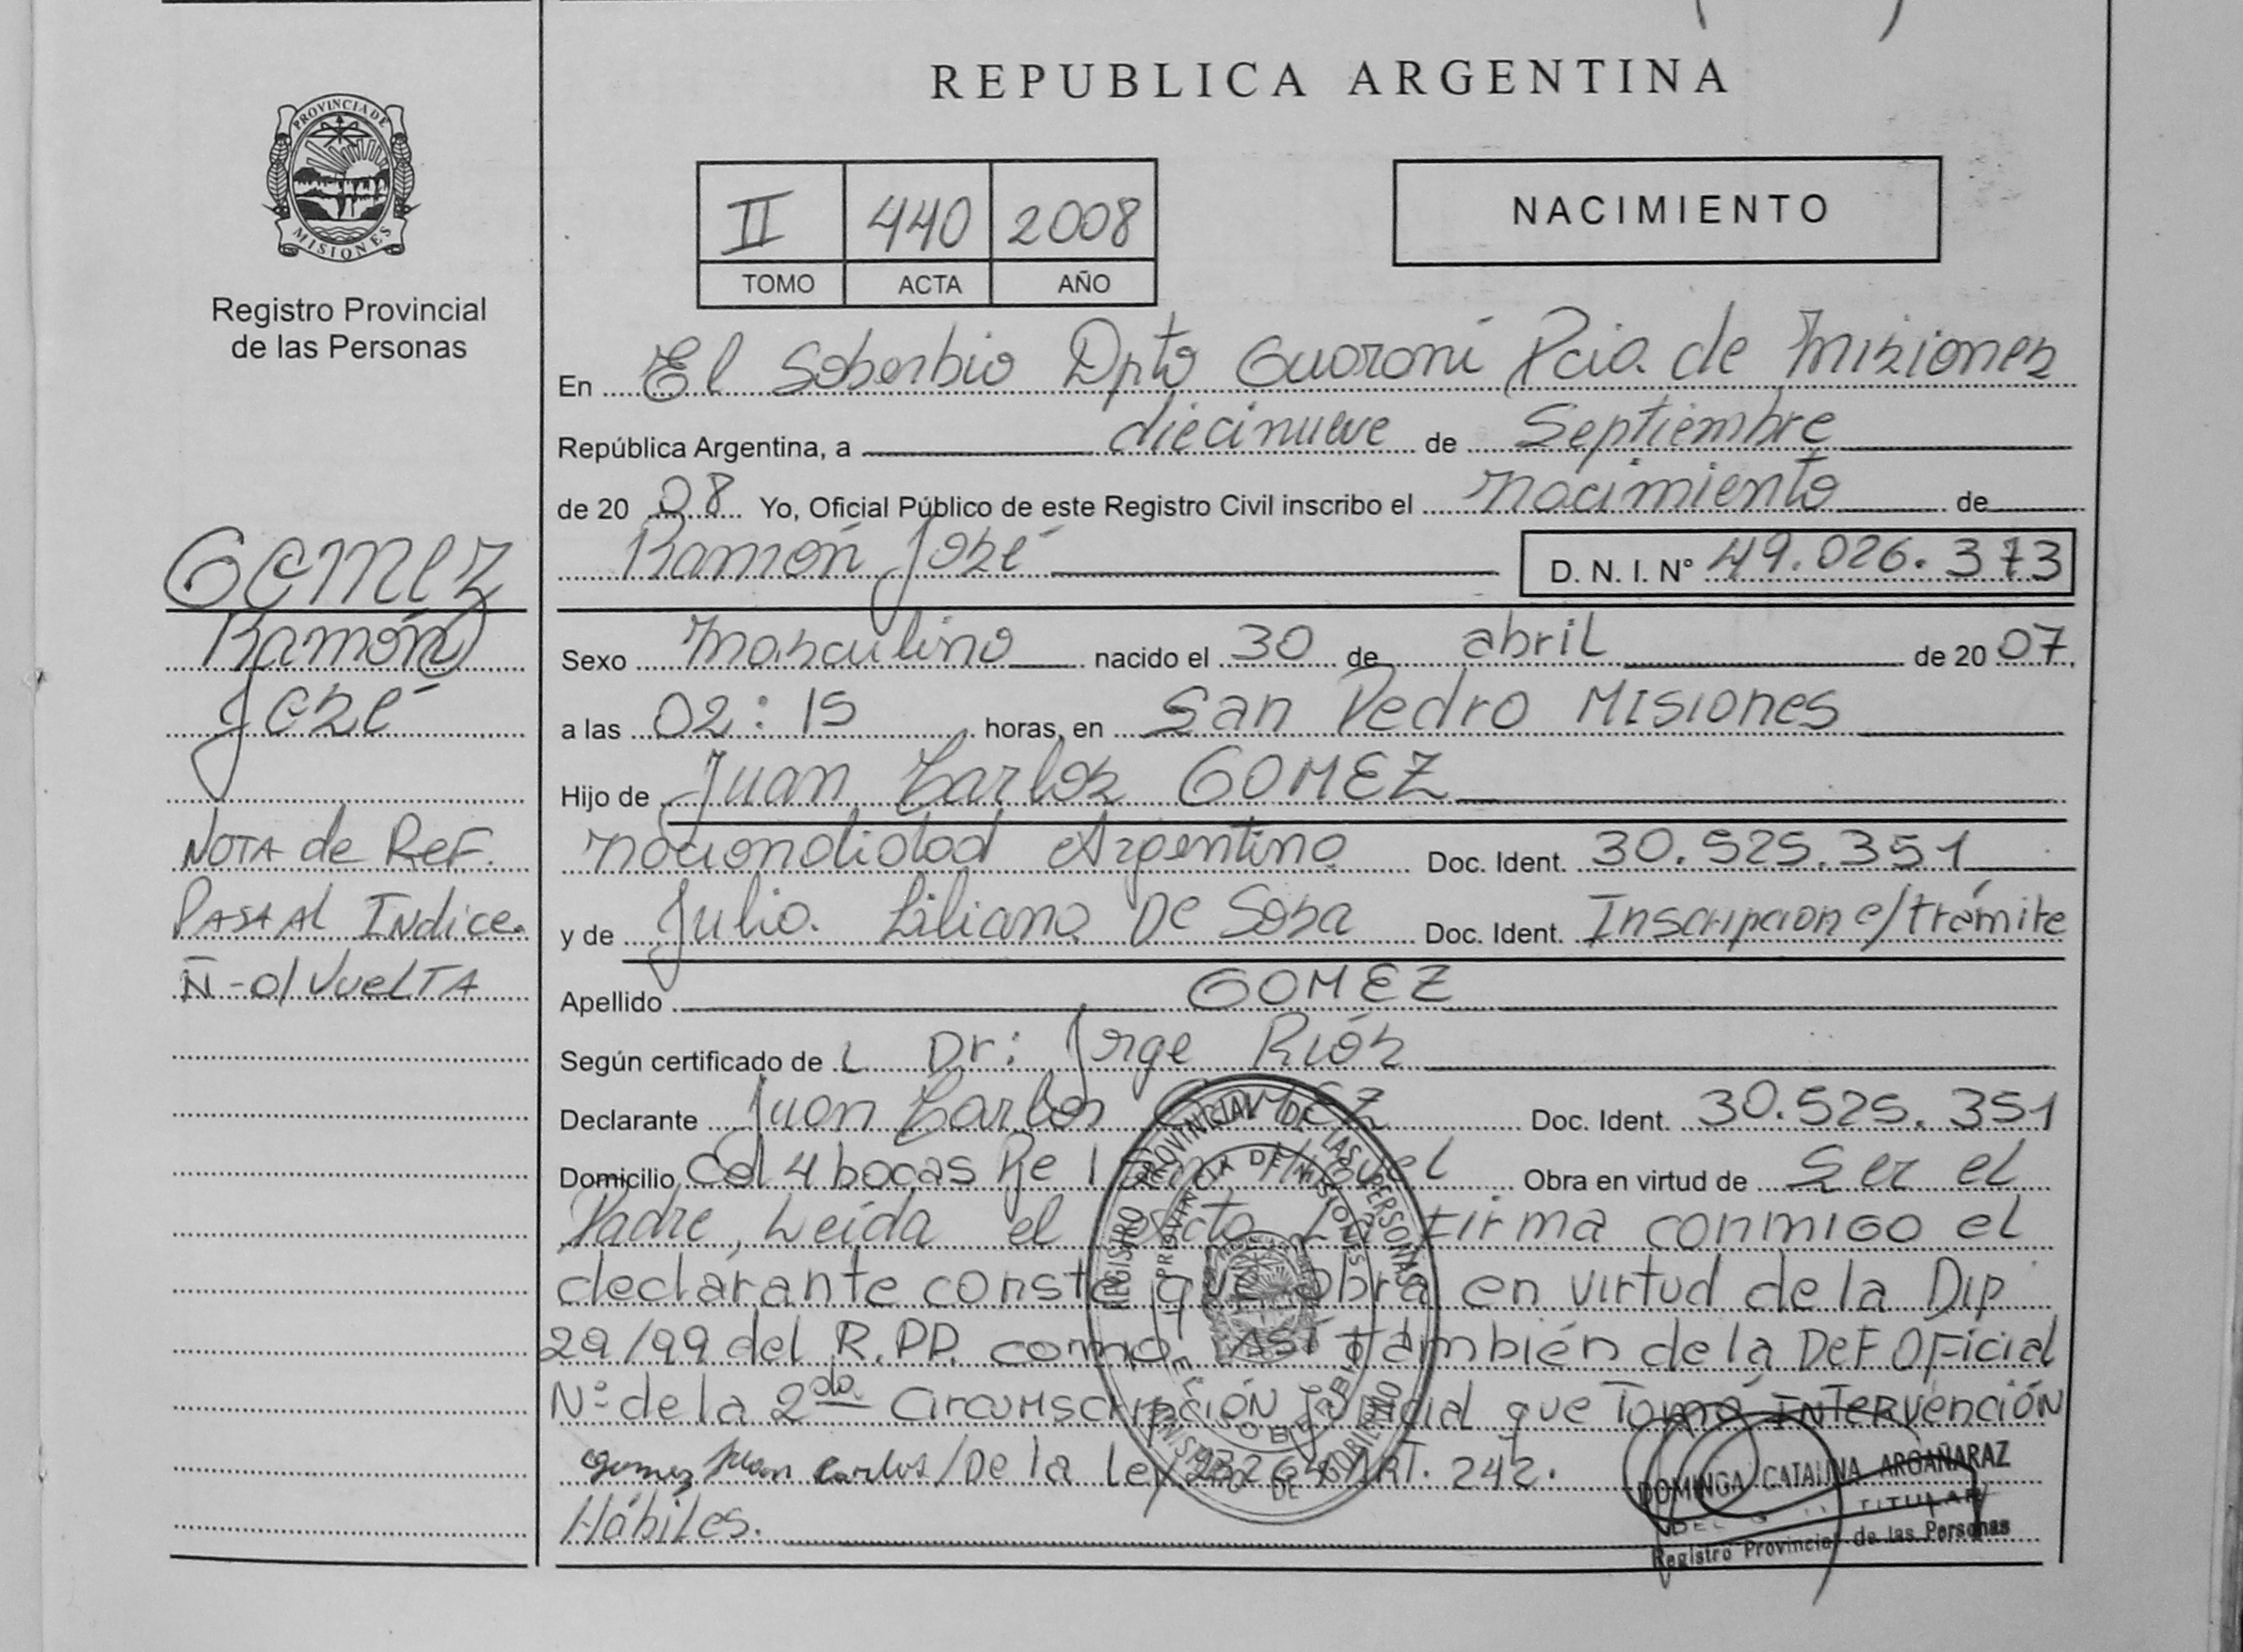 REPUBLICA ARGENTINA
PROVINCIA DE
MISIONES
Registro Provincial
de las Personas
II 440 2008
TOMO ACTA AÑO
NACIMIENTO
En El Soberbio Dpto Guaraní Pcia. de Misiones
República Argentina, a diecinueve de Septiembre
de 20 08 Yo, Oficial Público de este Registro Civil inscribo el nacimiento de
Ramón José D. N. I. N° 49.026.373
GOMEZ
Ramón
José
NOTA de ReF.
PASA AL INdice.
Ñ-O/VueLTA
Sexo Masculino nacido el 30 de abril de 20 07
a las 02:15 horas, en San Pedro Misiones
Hijo de Juan Carlos GOMEZ
nacionalidad Argentina Doc. Ident. 30.525.351
y de Julia Liliana De Sosa Doc. Ident. Inscripcion e/trámite
Apellido GOMEZ
Según certificado de L Dr: Jorge Ríos
Declarante Juan Carlos GOMEZ Doc. Ident. 30.525.351
Domicilio Col 4 bocas Pje Miguel Obra en virtud de Ser el
Padre, Leída el acta La firma conmigo el
declarante conste que obra en virtud de la Dip
29/99 del R.PP. como Así también de la DeF OFicial
N° de la 2da Circunscripción Judicial que Tomó INTERvención
Gomez Juan Carlos/De la Ley 23264 ART. 242.
Hábiles.
REGISTRO PROVINCIAL DE LAS PERSONAS
PROVINCIA DE MISIONES
EL SOBERBIO
DOMINGA CATALINA ARGAÑARAZ
TITULAR
Registro Provincial de las Personas